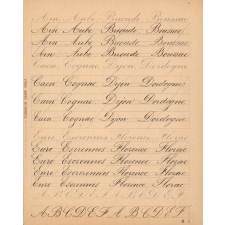 Ain Aube Brioude Boussac
Ain Aube Brioude Boussac
Ain Aube Brioude Boussac
Ain Aube Brioude Boussac
Caen Cognac Dijon Dordogne
Caen Cognac Dijon Dordogne
Caen Cognac Dijon Dordogne
Caen Cognac Dijon Dordogne
Eure Escrennes Florence Florac
Eure Escrennes Florence Florac
Eure Escrennes Florence Florac
Eure Escrennes Florence Florac
A B C D E F A B C D E F
A B C D E F A B C D E F